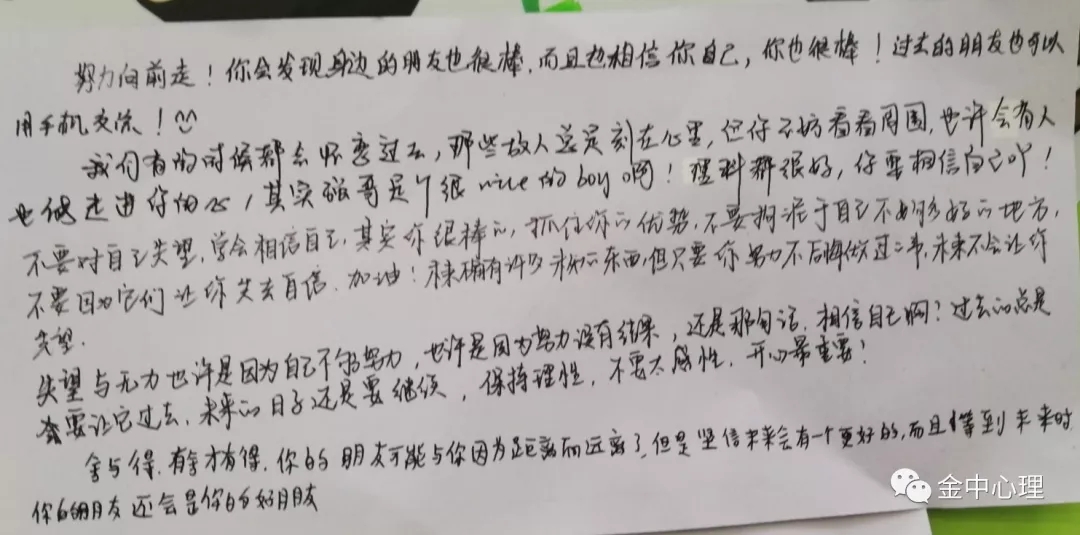 努力向前走！你会发现身边的朋友也很棒，而且也相信你自己，你也很棒！过去的朋友也可以
用手机交流！
我们有的时候都会怀恋过去，那些故人总是刻在心里，但你不妨看看周围，也许会有人
也能走进你的心，其实强哥是个很nice的boy啊！理科都很好，你要相信自己吖！
不要对自己失望，学会相信自己，其实你很棒的，抓住你的优势，不要拘泥于自己不够好的地方，
不要因为它们让你失去自信．加油！未来确有许多未知的东西，但只要你努力不后悔做过之事，未来不会让你
失望．
失望与无力也许是因为自己不够努力，也许是因为努力没有结果，还是那句话．相信自己啊？过去的总是
要让它过去，未来的日子还是要继续，保持理性，不要太感性．开心最重要！
舍与得．有舍才有得．你的朋友可能与你因为距离而远离了，但是坚信未来会有一个更好的，而且等到未来时
你的朋友还会是你的好朋友
金中心理